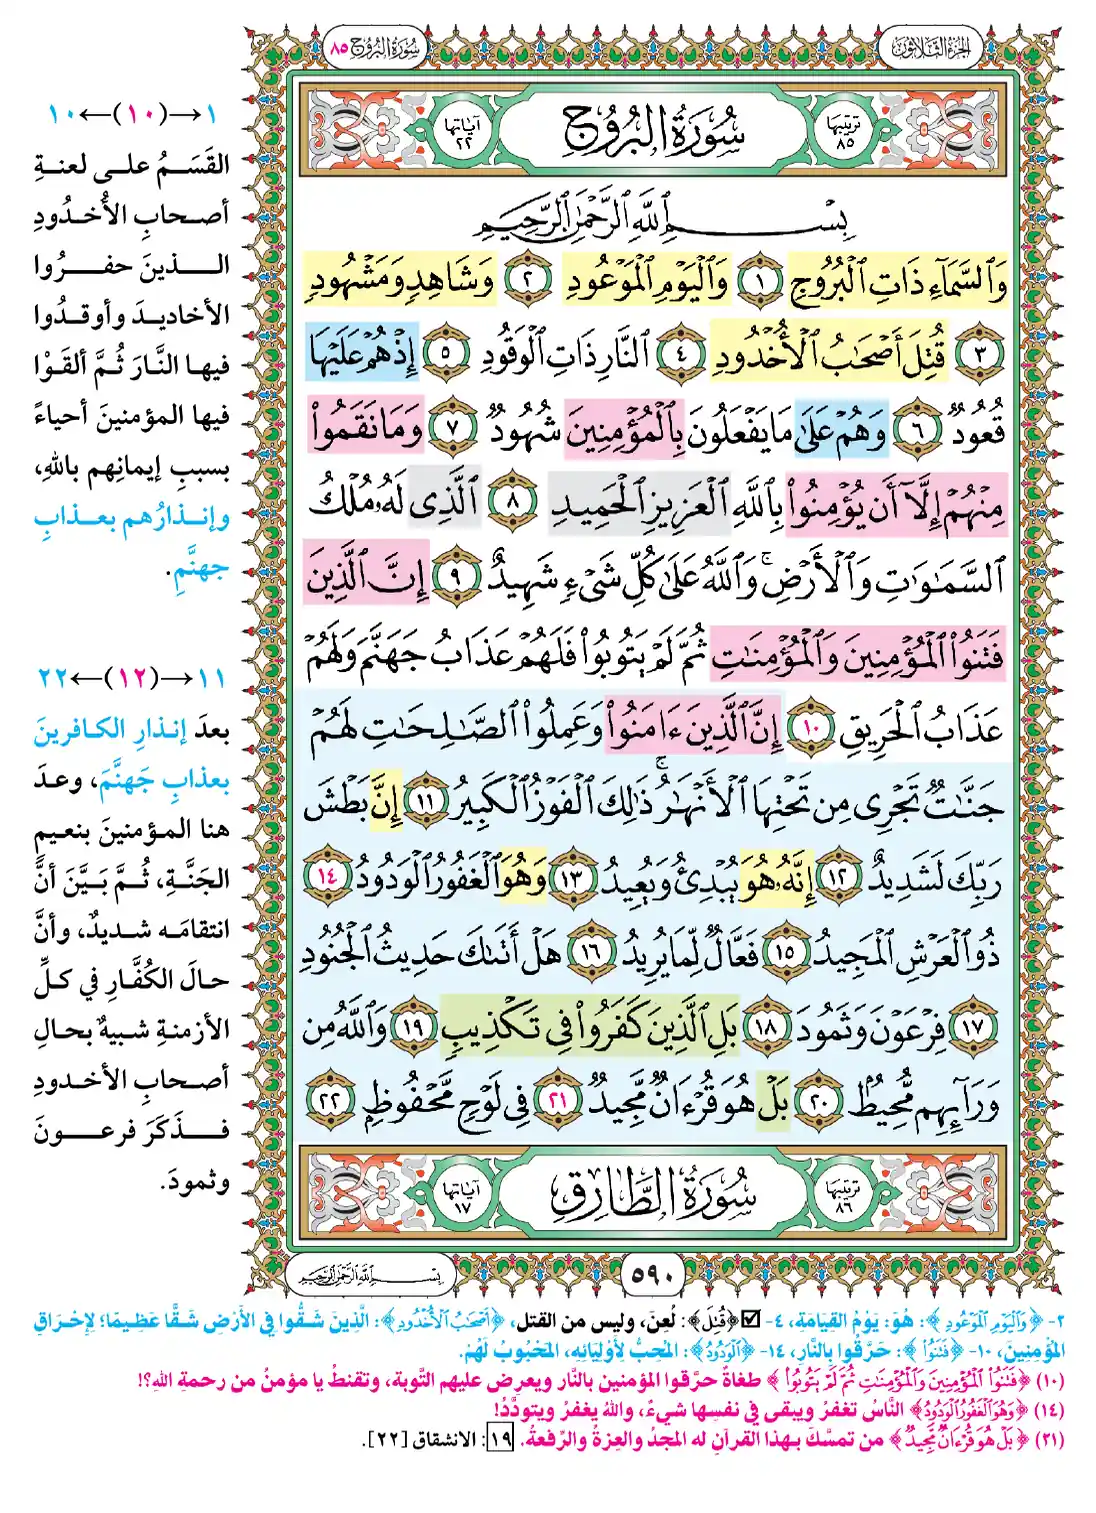 الجزء الثلاثون
سورة البروج ٨٥
ترتيبها ٨٥
سُورَةُ البُرُوجِ
آياتها ٢٢
بِسْمِ ٱللَّهِ ٱلرَّحْمَٰنِ ٱلرَّحِيمِ
وَٱلسَّمَآءِ ذَاتِ ٱلْبُرُوجِ ١ وَٱلْيَوْمِ ٱلْمَوْعُودِ ٢ وَشَاهِدٍ وَمَشْهُودٍ
٣ قُتِلَ أَصْحَٰبُ ٱلْأُخْدُودِ ٤ ٱلنَّارِ ذَاتِ ٱلْوَقُودِ ٥ إِذْ هُمْ عَلَيْهَا
قُعُودٌ ٦ وَهُمْ عَلَىٰ مَا يَفْعَلُونَ بِٱلْمُؤْمِنِينَ شُهُودٌ ٧ وَمَا نَقَمُوا۟
مِنْهُمْ إِلَّآ أَن يُؤْمِنُوا۟ بِٱللَّهِ ٱلْعَزِيزِ ٱلْحَمِيدِ ٨ ٱلَّذِى لَهُۥ مُلْكُ
ٱلسَّمَٰوَٰتِ وَٱلْأَرْضِ ۚ وَٱللَّهُ عَلَىٰ كُلِّ شَىْءٍ شَهِيدٌ ٩ إِنَّ ٱلَّذِينَ
فَتَنُوا۟ ٱلْمُؤْمِنِينَ وَٱلْمُؤْمِنَٰتِ ثُمَّ لَمْ يَتُوبُوا۟ فَلَهُمْ عَذَابُ جَهَنَّمَ وَلَهُمْ
عَذَابُ ٱلْحَرِيقِ ١٠ إِنَّ ٱلَّذِينَ ءَامَنُوا۟ وَعَمِلُوا۟ ٱلصَّٰلِحَٰتِ لَهُمْ
جَنَّٰتٌ تَجْرِى مِن تَحْتِهَا ٱلْأَنْهَٰرُ ۚ ذَٰلِكَ ٱلْفَوْزُ ٱلْكَبِيرُ ١١ إِنَّ بَطْشَ
رَبِّكَ لَشَدِيدٌ ١٢ إِنَّهُۥ هُوَ يُبْدِئُ وَيُعِيدُ ١٣ وَهُوَ ٱلْغَفُورُ ٱلْوَدُودُ ١٤
ذُو ٱلْعَرْشِ ٱلْمَجِيدُ ١٥ فَعَّالٌ لِّمَا يُرِيدُ ١٦ هَلْ أَتَىٰكَ حَدِيثُ ٱلْجُنُودِ
١٧ فِرْعَوْنَ وَثَمُودَ ١٨ بَلِ ٱلَّذِينَ كَفَرُوا۟ فِى تَكْذِيبٍ ١٩ وَٱللَّهُ مِن
وَرَآئِهِم مُّحِيطٌۢ ٢٠ بَلْ هُوَ قُرْءَانٌ مَّجِيدٌ ٢١ فِى لَوْحٍ مَّحْفُوظٍۭ ٢٢
ترتيبها ٨٦
سُورَةُ الطَّارِقِ
آياتها ١٧
٥٩٠
بِسْمِ ٱللَّهِ ٱلرَّحْمَٰنِ ٱلرَّحِيمِ
١→(١٠)←١٠
القَسَمُ على لعنةِ
أصحابِ الأُخدُودِ
الذينَ حفرُوا
الأخاديدَ وأوقدُوا
فيها النَّارَ ثُمَّ ألقَوْا
فيها المؤمنينَ أحياءً
بسببِ إيمانِهم باللهِ،
وإنذارُهم بعذابِ
جهنَّمِ.
١١→(١٢)←٢٢
بعدَ إنذارِ الكافرينَ
بعذابِ جَهنَّمَ، وعدَ
هنا المؤمنينَ بنعيمِ
الجَنَّةِ، ثُمَّ بَيَّنَ أنَّ
انتقامَه شديدٌ، وأنَّ
حالَ الكُفَّارِ في كلِّ
الأزمنةِ شبيهٌ بحالِ
أصحابِ الأخدودِ
فذَكَرَ فرعونَ
وثمودَ.
٢- ﴿وَٱلْيَوْمِ ٱلْمَوْعُودِ﴾: هُوَ: يَوْمُ القِيَامَةِ، ٤- ☑ ﴿قُتِلَ﴾: لُعِنَ، وليس من القتل، ﴿أَصْحَٰبُ ٱلْأُخْدُودِ﴾: الَّذِينَ شَقُّوا فِي الأَرْضِ شَقًّا عَظِيمًا؛ لِإِحْرَاقِ
المُؤْمِنِينَ، ١٠- ﴿فَتَنُوا۟﴾: حَرَّقُوا بِالنَّارِ، ١٤- ﴿ٱلْوَدُودُ﴾: المُحِبُّ لِأَوْلِيَائِهِ، المَحْبُوبُ لَهُمْ.
(١٠) ﴿فَتَنُوا۟ ٱلْمُؤْمِنِينَ وَٱلْمُؤْمِنَٰتِ ثُمَّ لَمْ يَتُوبُوا۟﴾ طغاةٌ حرَّقوا المؤمنين بالنَّار ويعرِض عليهم التَّوبة، وتقنطُ يا مؤمنُ من رحمة اللهِ؟!
(١٤) ﴿وَهُوَ ٱلْغَفُورُ ٱلْوَدُودُ﴾ النَّاسُ تغفرُ ويبقى في نفسِها شيءٌ، واللهُ يغفرُ ويتودَّدُ!
(٢١) ﴿بَلْ هُوَ قُرْءَانٌ مَّجِيدٌ﴾ من تمسَّكَ بهذا القرآنِ له المجدُ والعِزةُ والرِّفعةُ. ١٩: الانشقاق [٢٢].